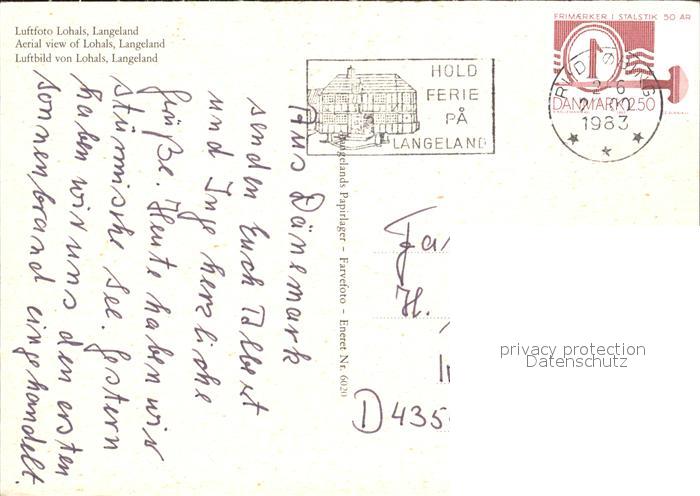 Luftfoto Lohals, Langeland
Aerial view of Lohals, Langeland
Luftbild von Lohals, Langeland
HOLD
FERIE
PÅ
LANGELAND
FRIMÆRKER I STALSTIK 50 ÅR
1
DANMARK 2.50
2 6
1983
Langelands Papirlager - Farvefoto - Eneret Nr. 6020
Aus Dänemark
senden Euch Albert
und Inge herzliche
Grüße. Heute haben wir
stürmische See. Gestern
haben wir uns den ersten
Sonnenbrand eingehandelt.
Fa
H.
D 435
privacy protection
Datenschutz